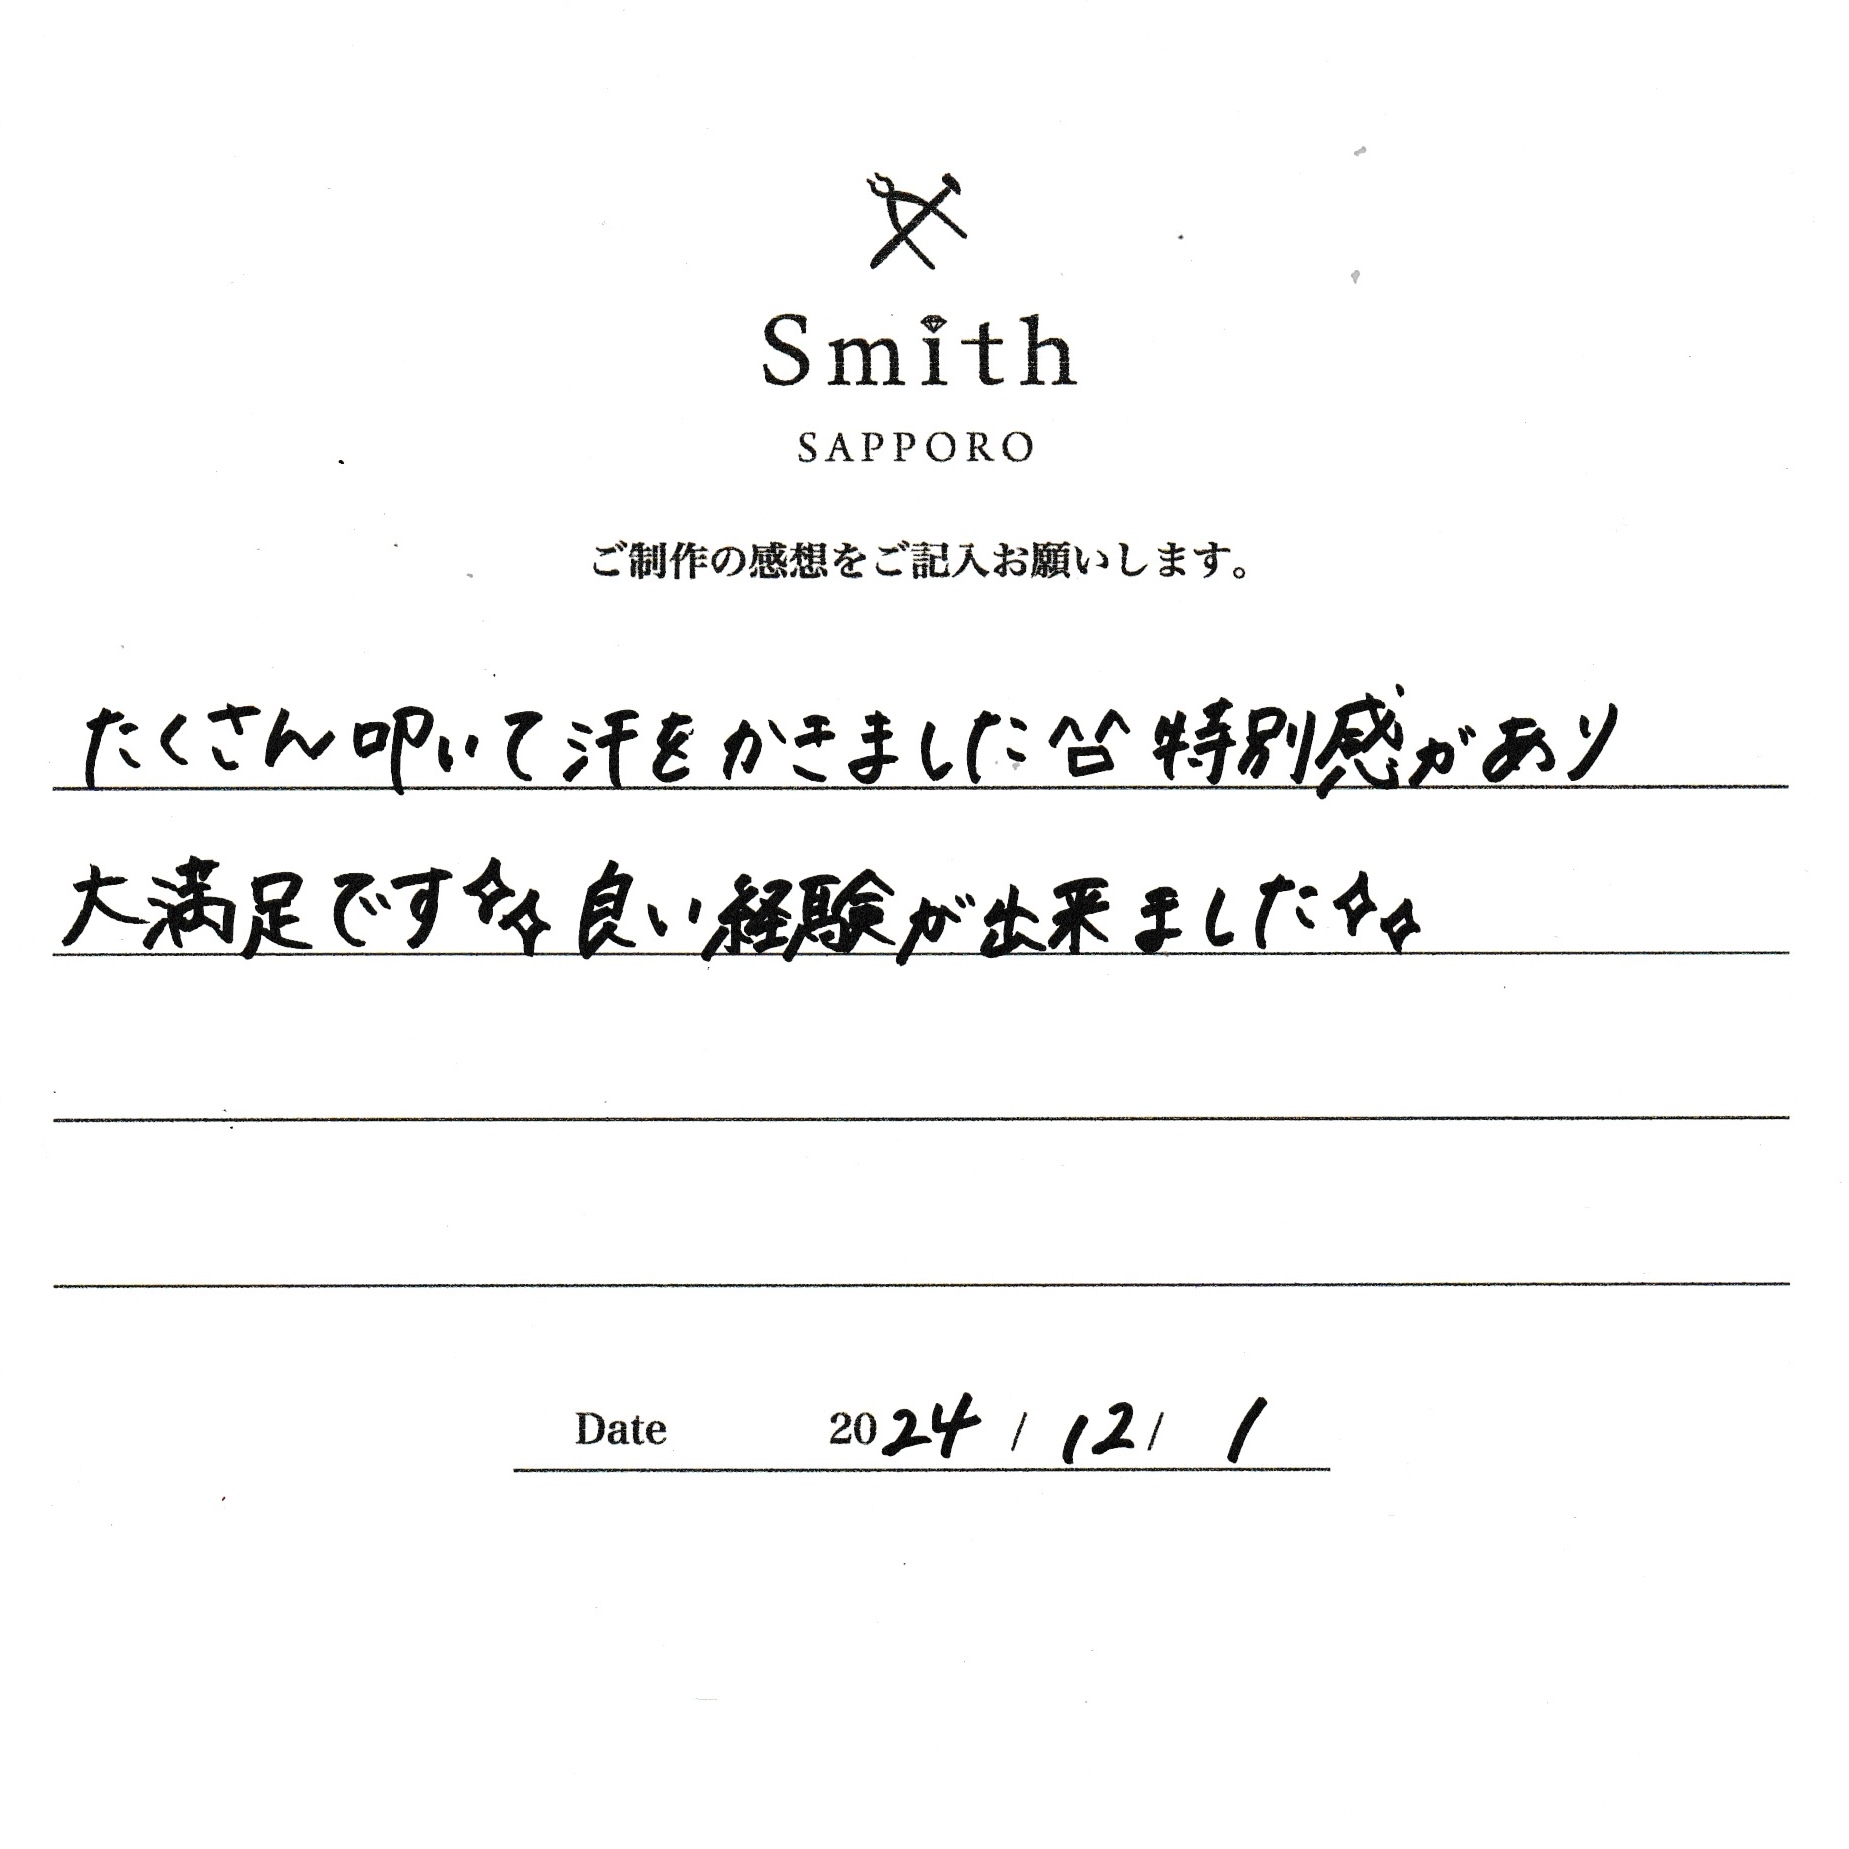 Smith
SAPPORO
ご制作の感想をご記入お願いします。
たくさん叩いて汗をかきました^□^ 特別感があり
大満足です✧✧ 良い経験が出来ました✧✧
Date 2024 / 12 / 1